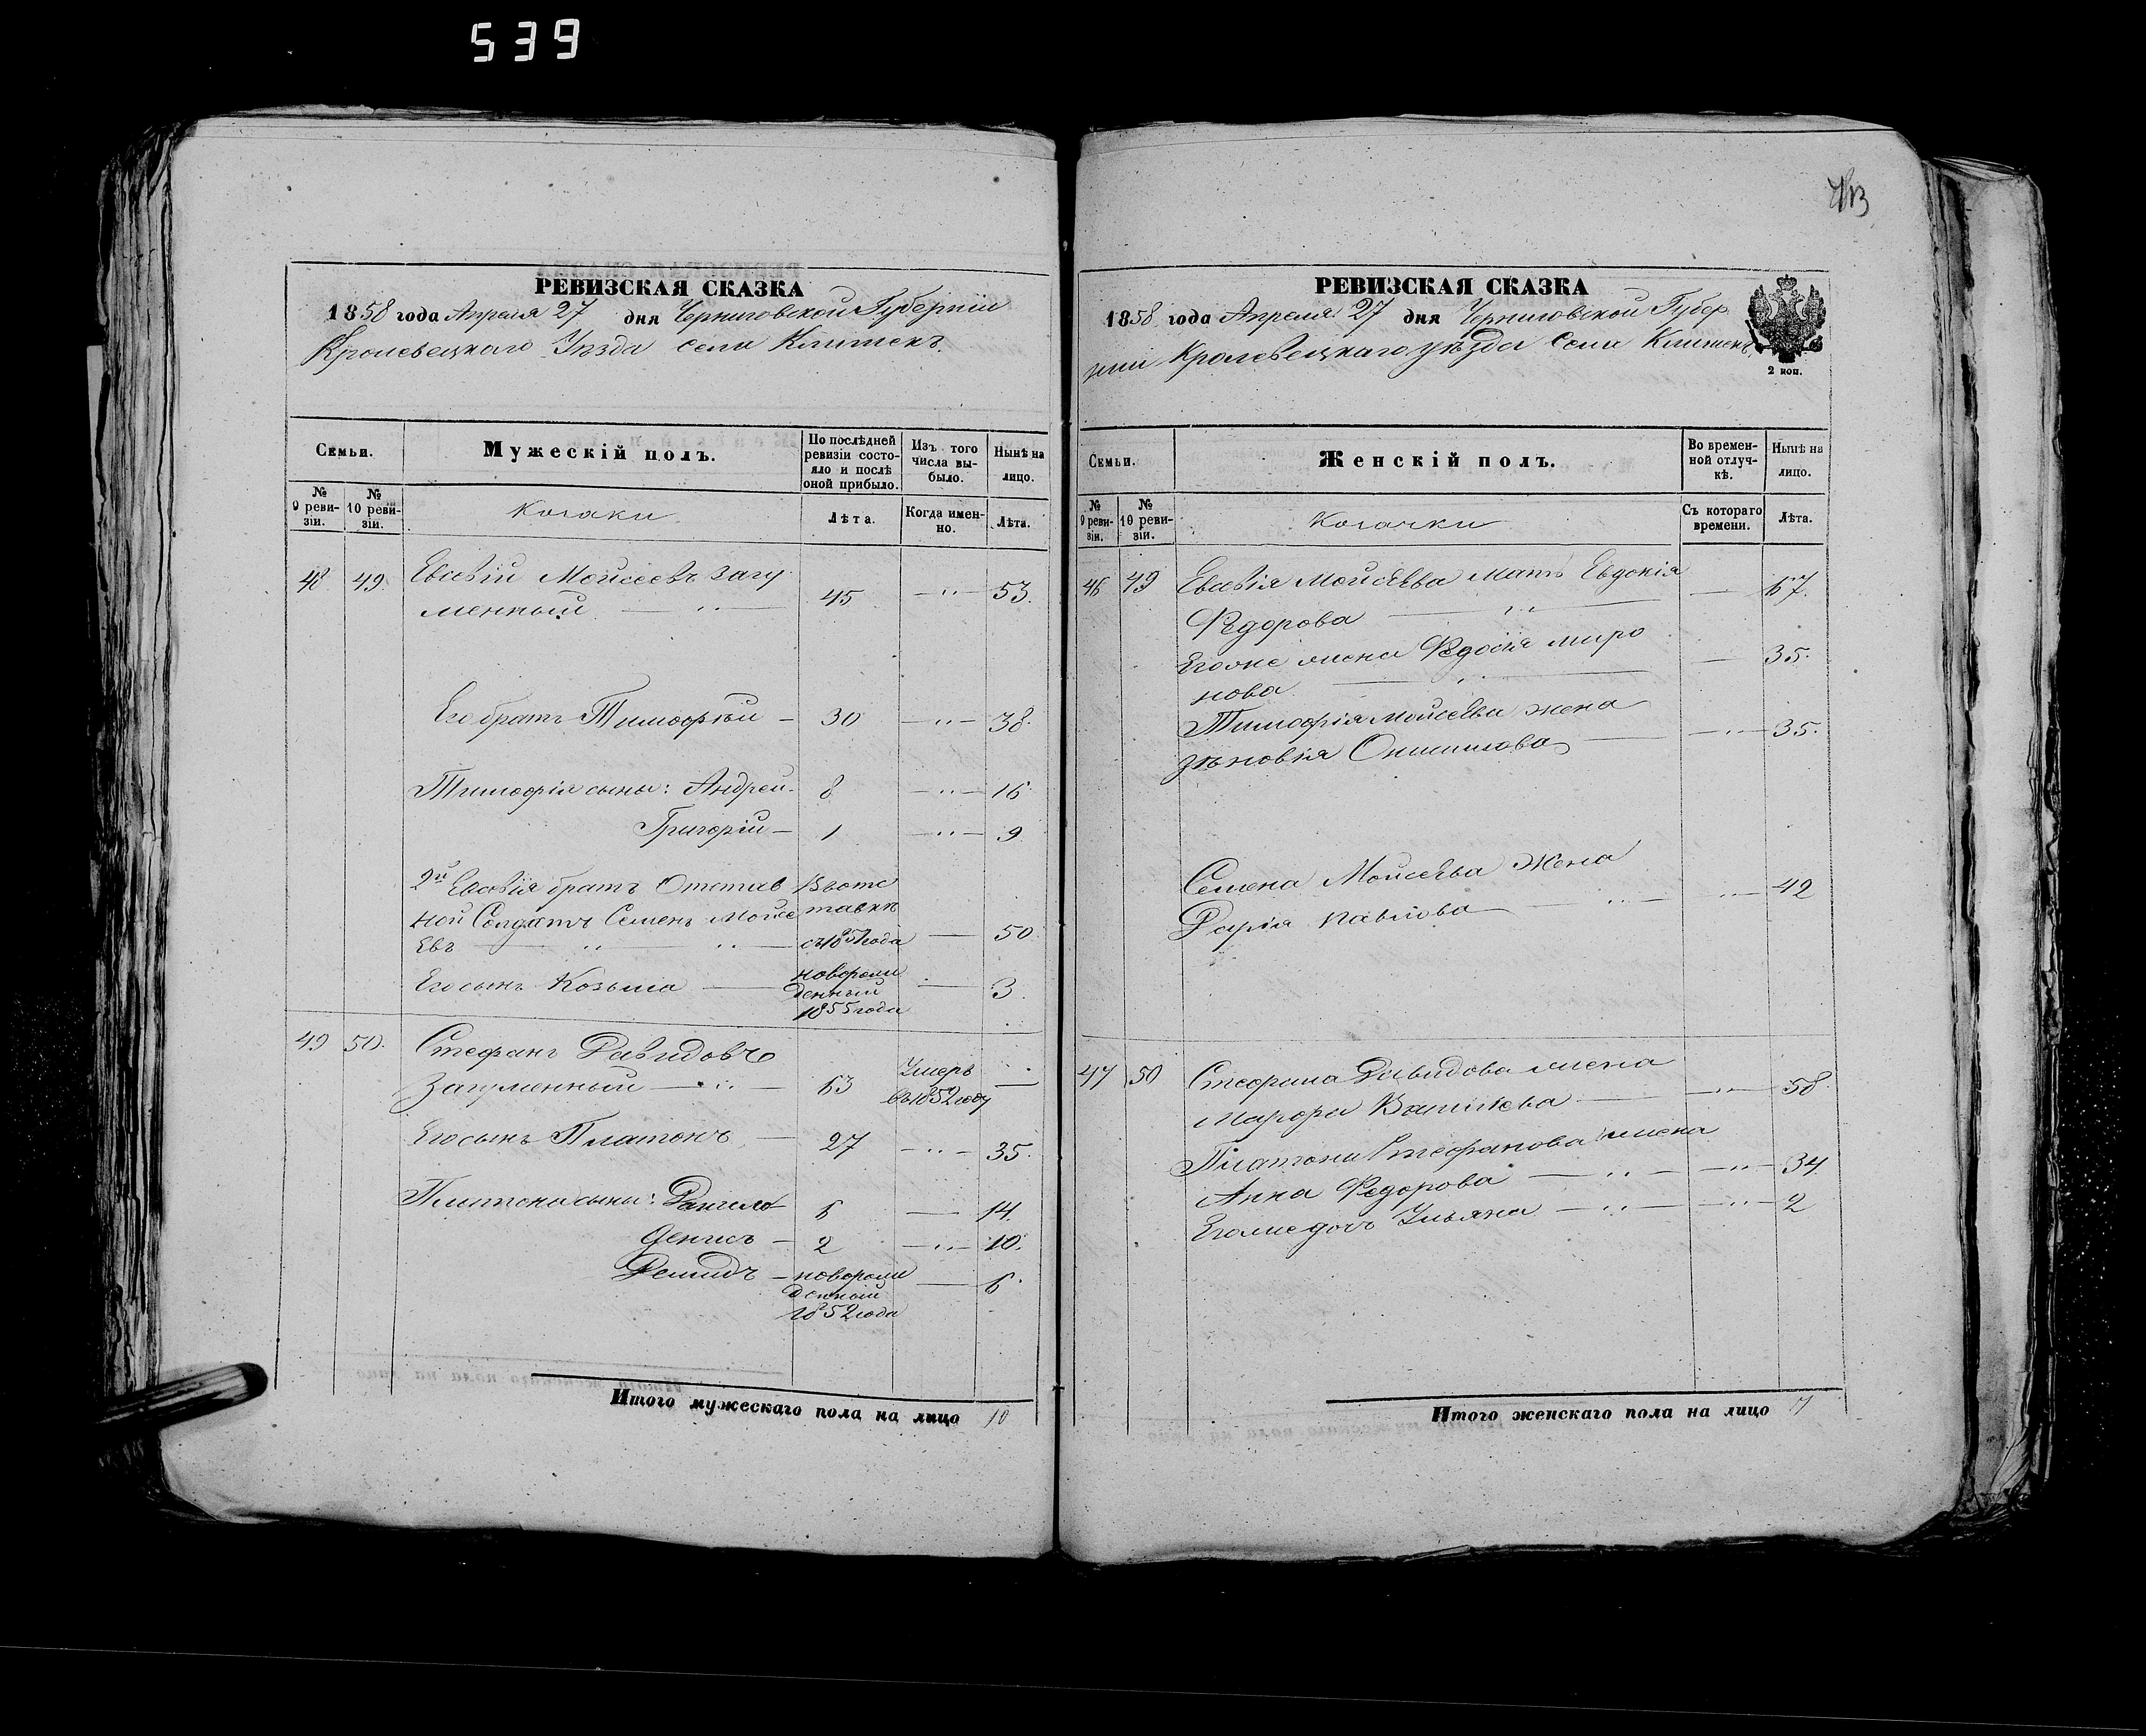 539
РЕВИЗСКАЯ СКАЗКА
1858 года Апреля 27 дня Черниговской Губерніи
Кролевецкаго Уѣзда села Клишекъ.
Семьи.
Мужескій полъ.
По послѣдней ревизіи состояло и послѣ оной прибыло.
Изъ того числа выбыло.
Нынѣ на лицо.
№ 9 ревизіи.
№ 10 ревизіи.
Козаки
Лѣта.
Когда именно.
Лѣта.
48 49. Евсевій Мойсеевъ Загу
менный — „ — 45 — „ — 53.
Его братъ Тимофѣй — 30 — „ — 38.
Тимофія сыны: Андрей — 8 — „ — 16
Григорій — 1 — „ — 9
2й Евсевія братъ Отстав Въ отс
ной Солдатъ Семенъ Мойсе тавкѣ
евъ — „ — „ — съ 1857 года — 50
Его сынъ Козьма — новорож
денный — 3.
1855 года
49 50. Стефанъ Давидовъ
Загуменный — „ — 63 Умеръ въ 1852 году —
Его сынъ Платонъ — 27 — „ — 35.
Платона сыны: Данило — 6 — 14.
Денисъ — 2 — „ — 10.
Демидъ — новорож
денный — 6.
1852 года
Итого мужескаго пола на лицо 10
РЕВИЗСКАЯ СКАЗКА
1858 года Апреля 27 дня Черниговской Губер
ніи Кролевецкаго уѣзда Села Клишекъ
2 коп.
Семьи.
Женскій полъ.
Во временной отлучкѣ.
Нынѣ на лицо.
№ 9 ревизіи.
№ 10 ревизіи.
Козачки
Съ котораго времени.
Лѣта.
46 49 Евсевія Мойсѣева Мать Евдокія
Ѳедорова — „ — 67.
Егоже жена Ѳедосія Миро
нова — 35.
Тимофія Мойсеева жена
Зѣновія Онисимова — „ — 35.
Семена Мойсѣева Жена
Дарія Павлова — „ — „ — 42
47 50 Стефана Давидова жена
Марфа — „ — 58
Платона Стефанова жена
Анна Ѳедорова — „ — „ — 34
Егоже дочь Ульяна — „ — „ — 2
Итого женскаго пола на лицо 7